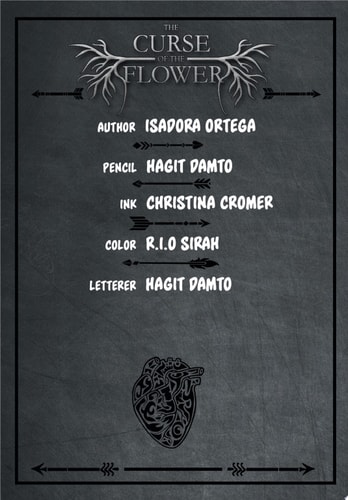 THE
CURSE
OF THE
FLOWER
AUTHOR ISADORA ORTEGA
PENCIL HAGIT DAMTO
INK CHRISTINA CROMER
COLOR R.I.O SIRAH
LETTERER HAGIT DAMTO